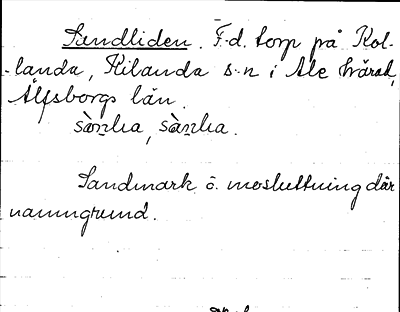 Sandliden. F.d. torp på Kol-
landa, Kilanda s:n i Ale härad,
Älfsborgs län.
Sandmark o. mosluttning där
namngrund.